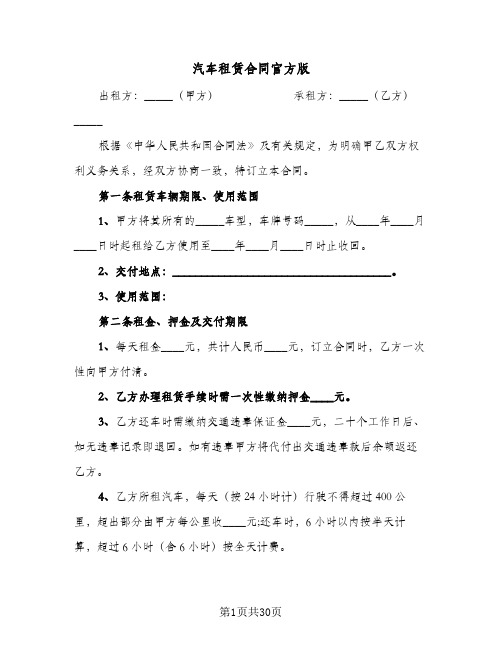 汽车租赁合同官方版
出租方：_____（甲方） 承租方：_____（乙方）
_____
根据《中华人民共和国合同法》及有关规定，为明确甲乙双方权
利义务关系，经双方协商一致，特订立本合同。
第一条租赁车辆期限、使用范围
1、甲方将其所有的_____车型，车牌号码_____，从____年____月
____日时起租给乙方使用至____年____月____日时止收回。
2、交付地点：______________________________________。
3、使用范围：
第二条租金、押金及交付期限
1、每天租金____元，共计人民币____元，订立合同时，乙方一次
性向甲方付清。
2、乙方办理租赁手续时需一次性缴纳押金____元。
3、乙方还车时需缴纳交通违章保证金____元，二十个工作日后、
如无违章记录即退回。如有违章甲方将代付出交通违章款后余额返还
乙方。
4、乙方所租汽车，每天（按24小时计）行驶不得超过400公
里，超出部分由甲方每公里收____元;还车时，6小时以内按半天计
算，超过6小时（含6小时）按全天计费。
第1页共30页